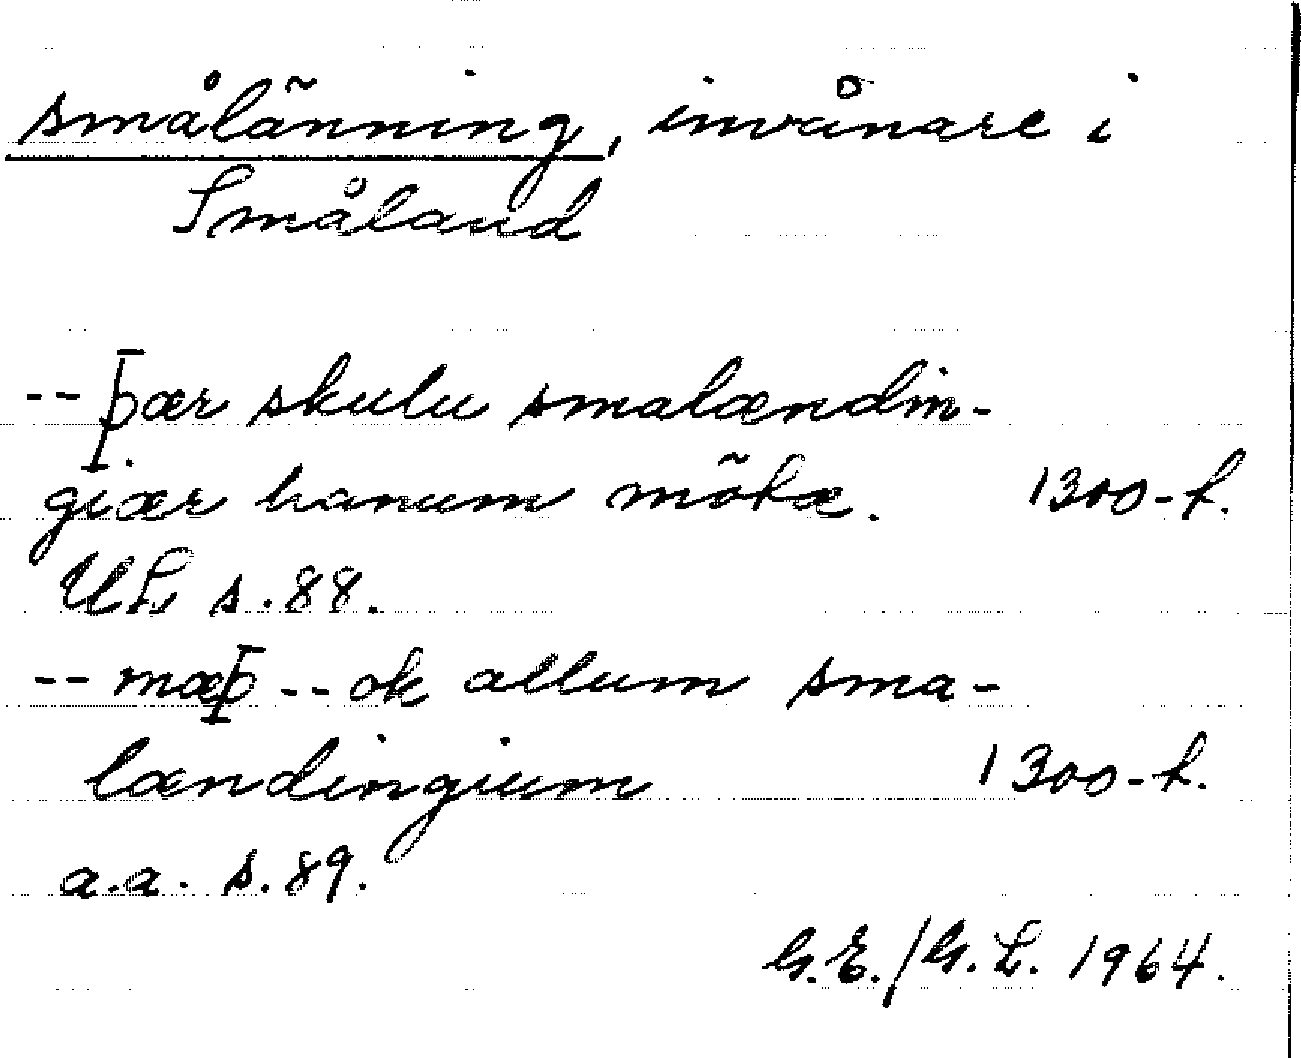 smålänning, invånare i
Småland
-- þær skulu smalændin-
giær hanum mötæ. 1300-t.
UL s. 88.
-- mæþ -- ok allum sma-
lændingium 1300-t.
a.a. s. 89.
G.E./G.L. 1964.